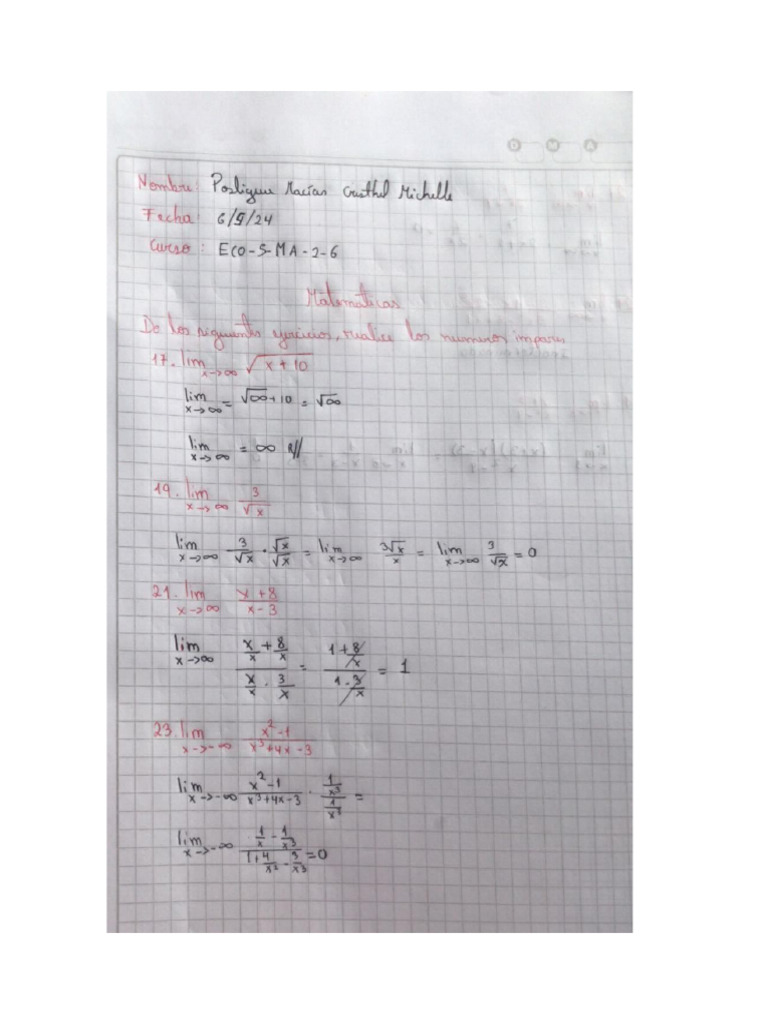 O M A
Nombre: Posligua Macías Cristhel Michelle
Fecha: 6/9/24
Curso: ECO-S-MA-2-6
Matemáticas
De los siguientes ejercicios, realice los números impares
17. lim x→∞ √(x+10)
lim x→∞ = √∞+10 = √∞
lim x→∞ = ∞ R//
19. lim x→∞ 3/√x
lim x→∞ 3/√x · √x/√x = lim x→∞ 3√x/x = lim x→∞ 3/√x = 0
21. lim x→∞ (x+8)/(x-3)
lim x→∞ (x/x + 8/x)/(x/x · 3/x) = (1+8/x)/(1·3/x) = 1
23. lim x→-∞ (x²-1)/(x³+4x-3)
lim x→-∞ (x²-1)/(x³+4x-3) · (1/x³)/(1/x³) =
lim x→-∞ (1/x - 1/x³)/(1+4/x² - 3/x³) = 0